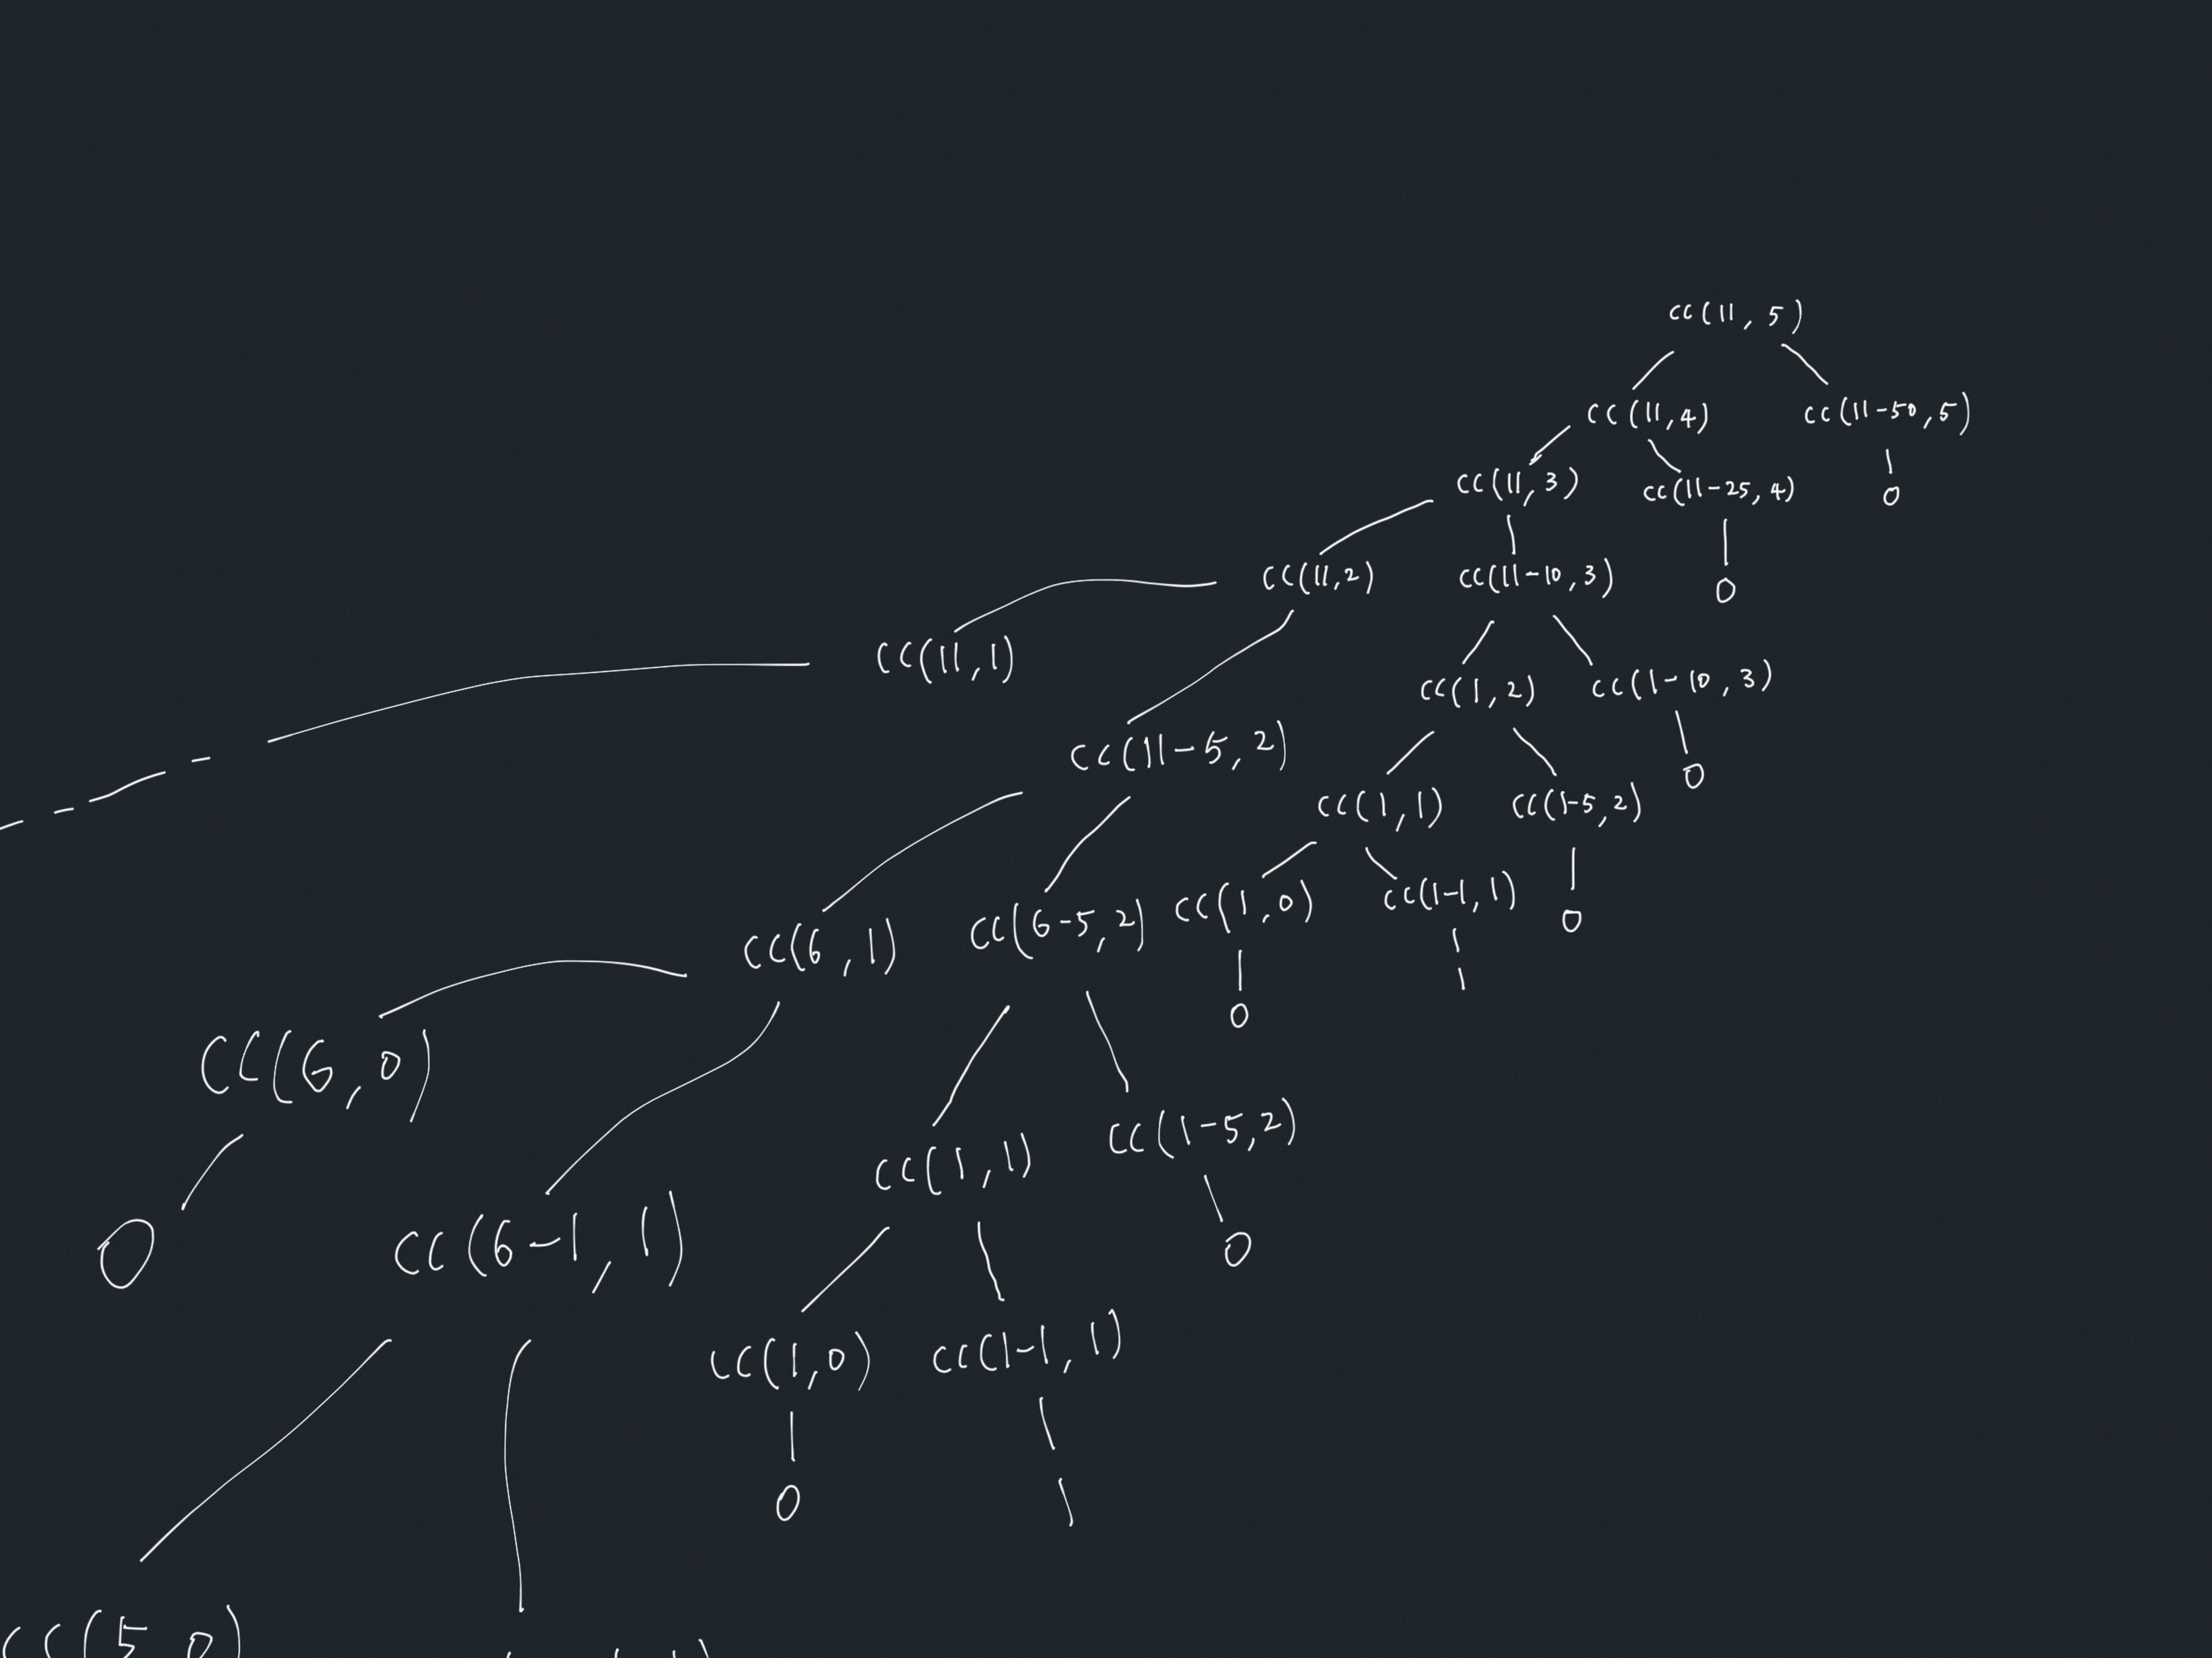 cc(11, 5)
cc(11,4)
cc(11-50,5)
cc(11,3)
cc(11-25,4)
0
cc(11,2)
cc(11-10,3)
0
cc(11,1)
cc(1,2)
cc(1-10,3)
cc(11-5,2)
0
cc(1,1)
cc(1-5,2)
cc(6,1)
cc(6-5,2)
cc(1,0)
cc(1-1,1)
0
1
0
cc(6,0)
cc(1,1)
cc(1-5,2)
0
cc(6-1,1)
0
cc(1,0)
cc(1-1,1)
0
1
cc(5 0)